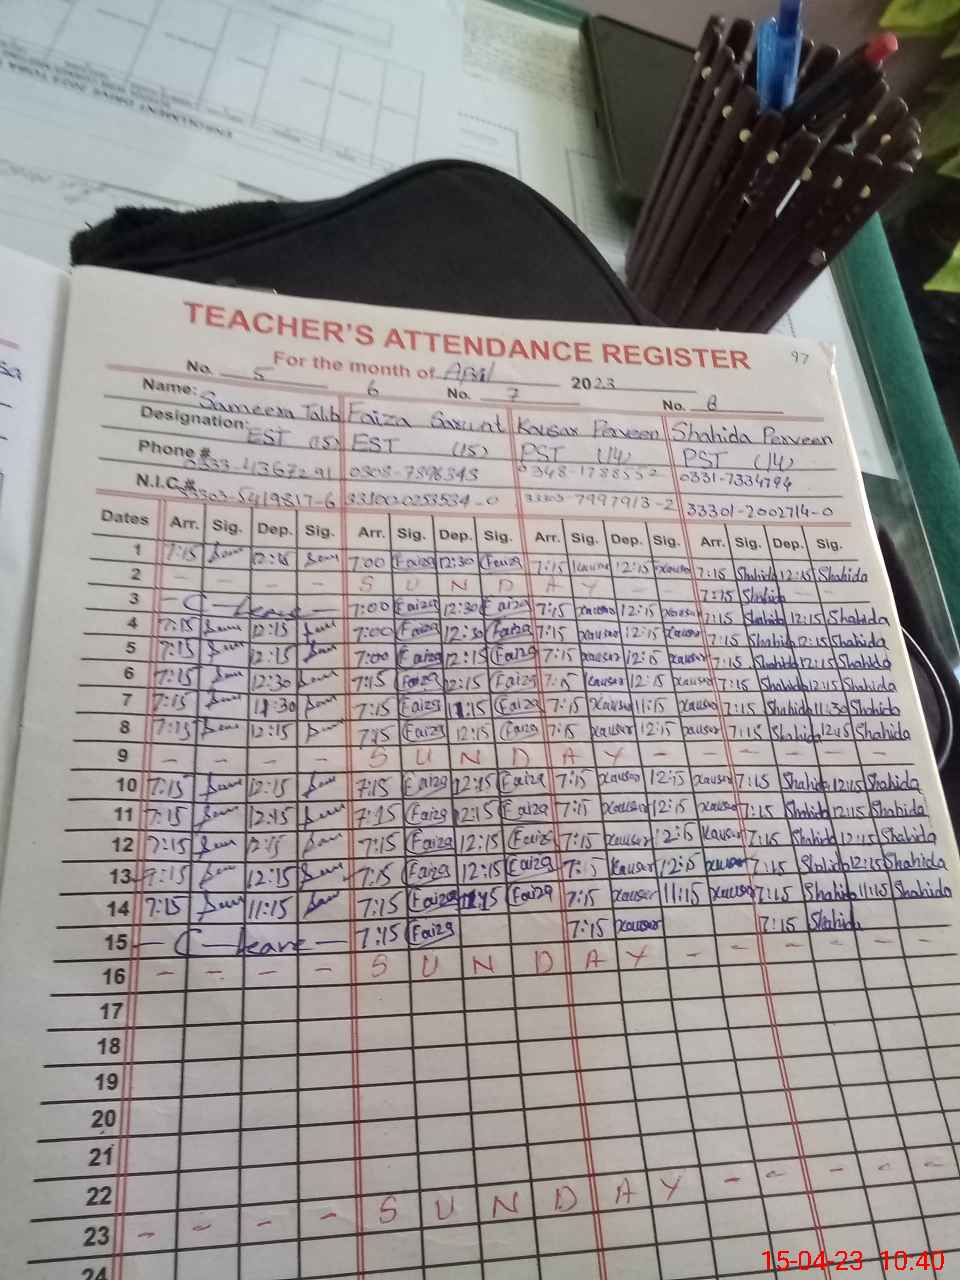 TEACHER'S ATTENDANCE REGISTER
97
For the month of April 2023
No. 5 6 No. 7 No. 8
Name: Sameera Talib Faiza Kausar Perveen Shahida Perveen
Designation: EST (15) EST (15) PST (14) PST (14)
Phone # 0348-1788552 0331-7334794
N.I.C.# 33303-5419817-6 33303-7997913-2 33301-2002714-0
Dates Arr. Sig. Dep. Sig. Arr. Sig. Dep. Sig. Arr. Sig. Dep. Sig. Arr. Sig. Dep. Sig.
1 7:15 12:15 7:00 Faiza 12:30 Faiza 7:15 Kausar 12:15 Kausar 7:15 Shahida 12:15 Shahida
2 - - - - S U N D A Y - - 7:15 Shahida - -
3 - C-Leave - 7:00 Faiza 12:30 Faiza 7:15 Kausar 12:15 Kausar 7:15 Shahida 12:15 Shahida
4 7:15 12:15 7:00 Faiza 12:30 Faiza 7:15 Kausar 12:15 Kausar 7:15 Shahida 12:15 Shahida
5 7:15 12:15 7:00 Faiza 12:15 Faiza 7:15 Kausar 12:15 Kausar 7:15 Shahida 12:15 Shahida
6 7:15 12:30 7:15 Faiza 12:15 Faiza 7:15 Kausar 12:15 Kausar 7:15 Shahida 12:15 Shahida
7 7:15 11:30 7:15 Faiza 11:15 Faiza 7:15 Kausar 11:15 Kausar 7:15 Shahida 11:30 Shahida
8 7:15 12:15 7:15 Faiza 12:15 Faiza 7:15 Kausar 12:15 Kausar 7:15 Shahida 12:15 Shahida
9 - - - - S U N D A Y - - - - - -
10 7:15 12:15 7:15 Faiza 12:15 Faiza 7:15 Kausar 12:15 Kausar 7:15 Shahida 12:15 Shahida
11 7:15 12:15 7:15 Faiza 12:15 Faiza 7:15 Kausar 12:15 Kausar 7:15 Shahida 12:15 Shahida
12 7:15 12:15 7:15 Faiza 12:15 Faiza 7:15 Kausar 12:15 Kausar 7:15 Shahida 12:15 Shahida
13 7:15 12:15 7:15 Faiza 12:15 Faiza 7:15 Kausar 12:15 Kausar 7:15 Shahida 12:15 Shahida
14 7:15 11:15 7:15 Faiza 11:15 Faiza 7:15 Kausar 11:15 Kausar 7:15 Shahida 11:15 Shahida
15 - C-Leave - 7:15 Faiza 7:15 Kausar 7:15 Shahida
16 - - - - S U N D A Y - - - - - -
17
18
19
20
21
22
23 - - - - S U N D A Y - - - - -
24
15-04-23 10.40